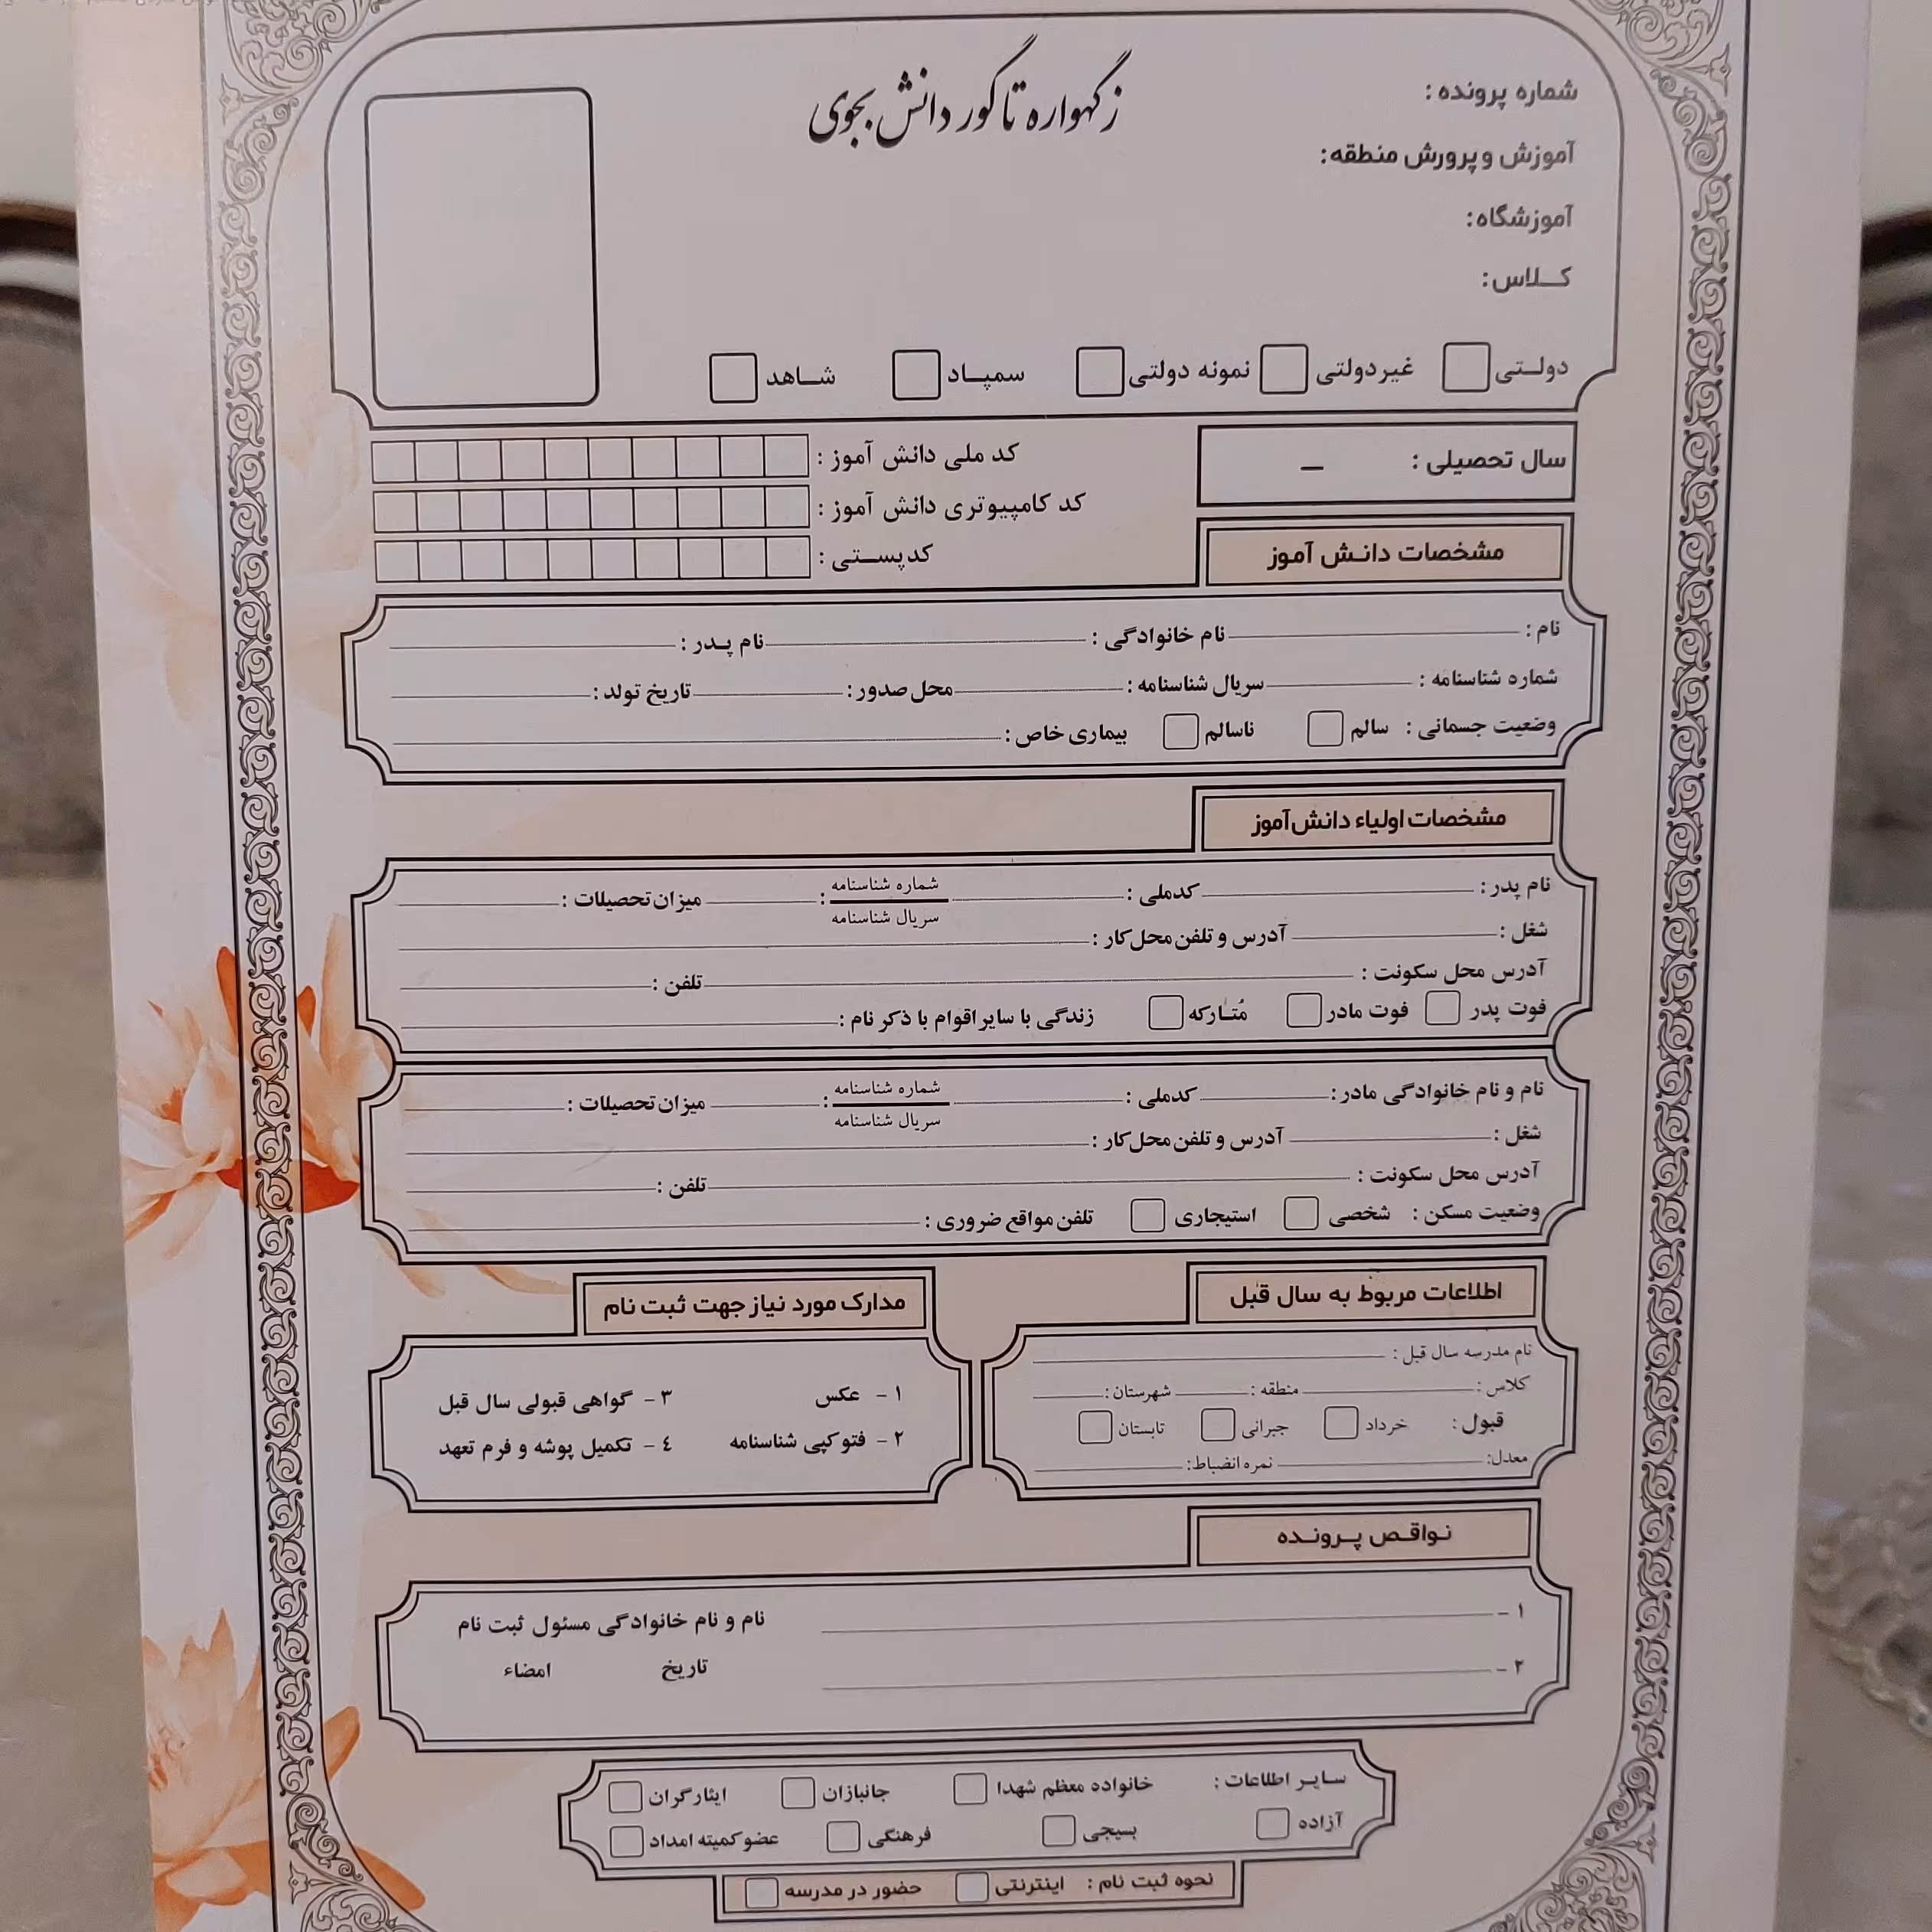 ز گهواره تا گور دانش بجوی
شماره پرونده :
آموزش و پرورش منطقه:
آموزشگاه:
کــلاس:
دولــتی غیردولتی نمونه دولتی سمپــاد شــاهد
سال تحصیلی : –
کد ملی دانش آموز :
کد کامپیوتری دانش آموز :
کدپســتی :
مشخصات دانـش آموز
نام : نام خانوادگی : نام پـدر :
شماره شناسنامه : سریال شناسنامه : محل صدور: تاریخ تولد :
وضعیت جسمانی : سالم ناسالم بیماری خاص :
مشخصات اولیاء دانش‌آموز
نام پدر : کدملی : شماره شناسنامه : میزان تحصیلات :
سریال شناسنامه
شغل : آدرس و تلفن محل کار :
آدرس محل سکونت : تلفن :
فوت پدر فوت مادر مُتـارکه زندگی با سایر اقوام با ذکر نام :
نام و نام خانوادگی مادر: کدملی : شماره شناسنامه : میزان تحصیلات :
سریال شناسنامه
شغل : آدرس و تلفن محل کار :
آدرس محل سکونت : تلفن :
وضعیت مسکن : شخصی استیجاری تلفن مواقع ضروری :
اطلاعات مربوط به سال قبل
نام مدرسه سال قبل :
کلاس : منطقه : شهرستان :
قبول : خرداد جبرانی تابستان
معدل: نمره انضباط:
مدارک مورد نیاز جهت ثبت نام
۱ - عکس ۳ - گواهی قبولی سال قبل
۲ - فتوکپی شناسنامه ٤ - تکمیل پوشه و فرم تعهد
نـواقـص پـرونـده
۱ -
۲ -
نام و نام خانوادگی مسئول ثبت نام
تاریخ امضاء
سـایـر اطلاعات : خانواده معظم شهدا جانبازان ایثارگران
آزاده بسیجی فرهنگی عضو کمیته امداد
نحوه ثبت نام : اینترنتی حضور در مدرسه